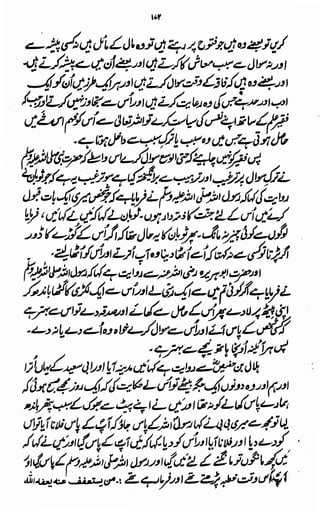 ۱۸۲
کریں تو بعضے وہ ہیں جو فتوح پر رہتے ہیں تو وہ مال کے مائل ہیں نہ کسی پیشہ سے
اور نہ سوال سے سبب معاش کا کرتے ہیں اور بعضے اُن میں سے پیشہ کرتے ہیں۔
اور بعضے وہ ہیں کہ فاقہ کے وقت سوال کرتے ہیں اور ہر ایک طرز میں اُن کو ایک
ادب اور حد ہے جس کی وہ رعایت کرتے ہیں اور اُس سے تجاوز نہیں کرتے اور جب کہ
فقیر علم کے ساتھ اپنے نفس کی سیاست کرے تو اللہ تعالیٰ سے اُس کو فہم اُس شے میں
حاصل ہوتی ہے جس میں وہ سبب یا ترک سبب سے داخل ہوتا ہے۔
پس فقیر کو نہیں چاہیے کہ حتی الوسع سوال کرے اس واسطے کہ حضرت نبی صلی اللہ علیہ وسلم
نے ترک سوال پر ترغیب اور ترہیب سے برانگیختہ کیا ہے سو ترغیب یہ ہے کہ جو ثوبان نے
روایت کی کہا کہ رسول اللہ صلی اللہ علیہ وسلم نے فرمایا ہے جو شخص میری ایک بات قبول
کرے میں اُس کے لئے جنت کا ذمہ دار ہوں۔ ثوبان نے کہا کہ میں نے کہا میں، فرمایا
لوگوں سے کوئی چیز نہ مانگ۔ پھر ثوبان کا یہ حال تھا کہ اگر اُس کے کوڑے کا ڈور
اگر پڑتا تو کسی سے نہ کہتا کہ اُسے اُٹھا دینا وہ آپ اُترتے اور اُس کو اُٹھا لیتے۔
اور حضرت ابو ہریرہ رضی اللہ عنہ سے روایت ہے کہا کہ رسول اللہ صلی اللہ علیہ وسلم
نے فرمایا ہے اگر کوئی تم میں سے ایک رسی لے اور اُس سے ایک لکڑی کا گٹھا باندھ کر
اپنی پیٹھ پر لادے پھر اُس کے حاصل سے کھائے اور صدقہ دے تو اس سے بہتر ہے
کہ کسی شخص کے پاس آئے اور اُس سے سوال کرے خواہ وہ اُسے دے یا نہ دے۔
پس ہر آئینہ اونچا ہاتھ نیچے سے بہتر ہے۔
ہلال بن حصین سے روایت ہے کہا میں مدینہ آیا اور ابی سعید کے یہاں اُترا
اور ہم اور وہ دونوں ایک جگہ بیٹھے تو اُس نے حکایت کی کہ ایک روز مجھے صبح ہوئی کہ
ہمارے پاس کھانے کو نہ تھا اور میں نے اپنے پیٹ سے بھوک کے سبب پتھر باندھ
لیا تو مجھ سے میری بی بی نے کہا رسول اللہ صلی اللہ علیہ وسلم کے پاس جاؤ کہ آپ کے پاس فلانا آیا تو اُس
کو دے دیا اور فلانا آیا اور اُس کو دیا کہا کہ میں آپ کے پاس گیا اور میں نے کہا کہ
میں کچھ مانگوں تو مانگنے کے لئے میں گیا اور رسول اللہ صلی اللہ علیہ وسلم کے پاس گیا اور
آپ اُس وقت خطبہ پڑھتے تھے اور فرما رہے تھے: من یستعفف عنہ یعفہ اللہ